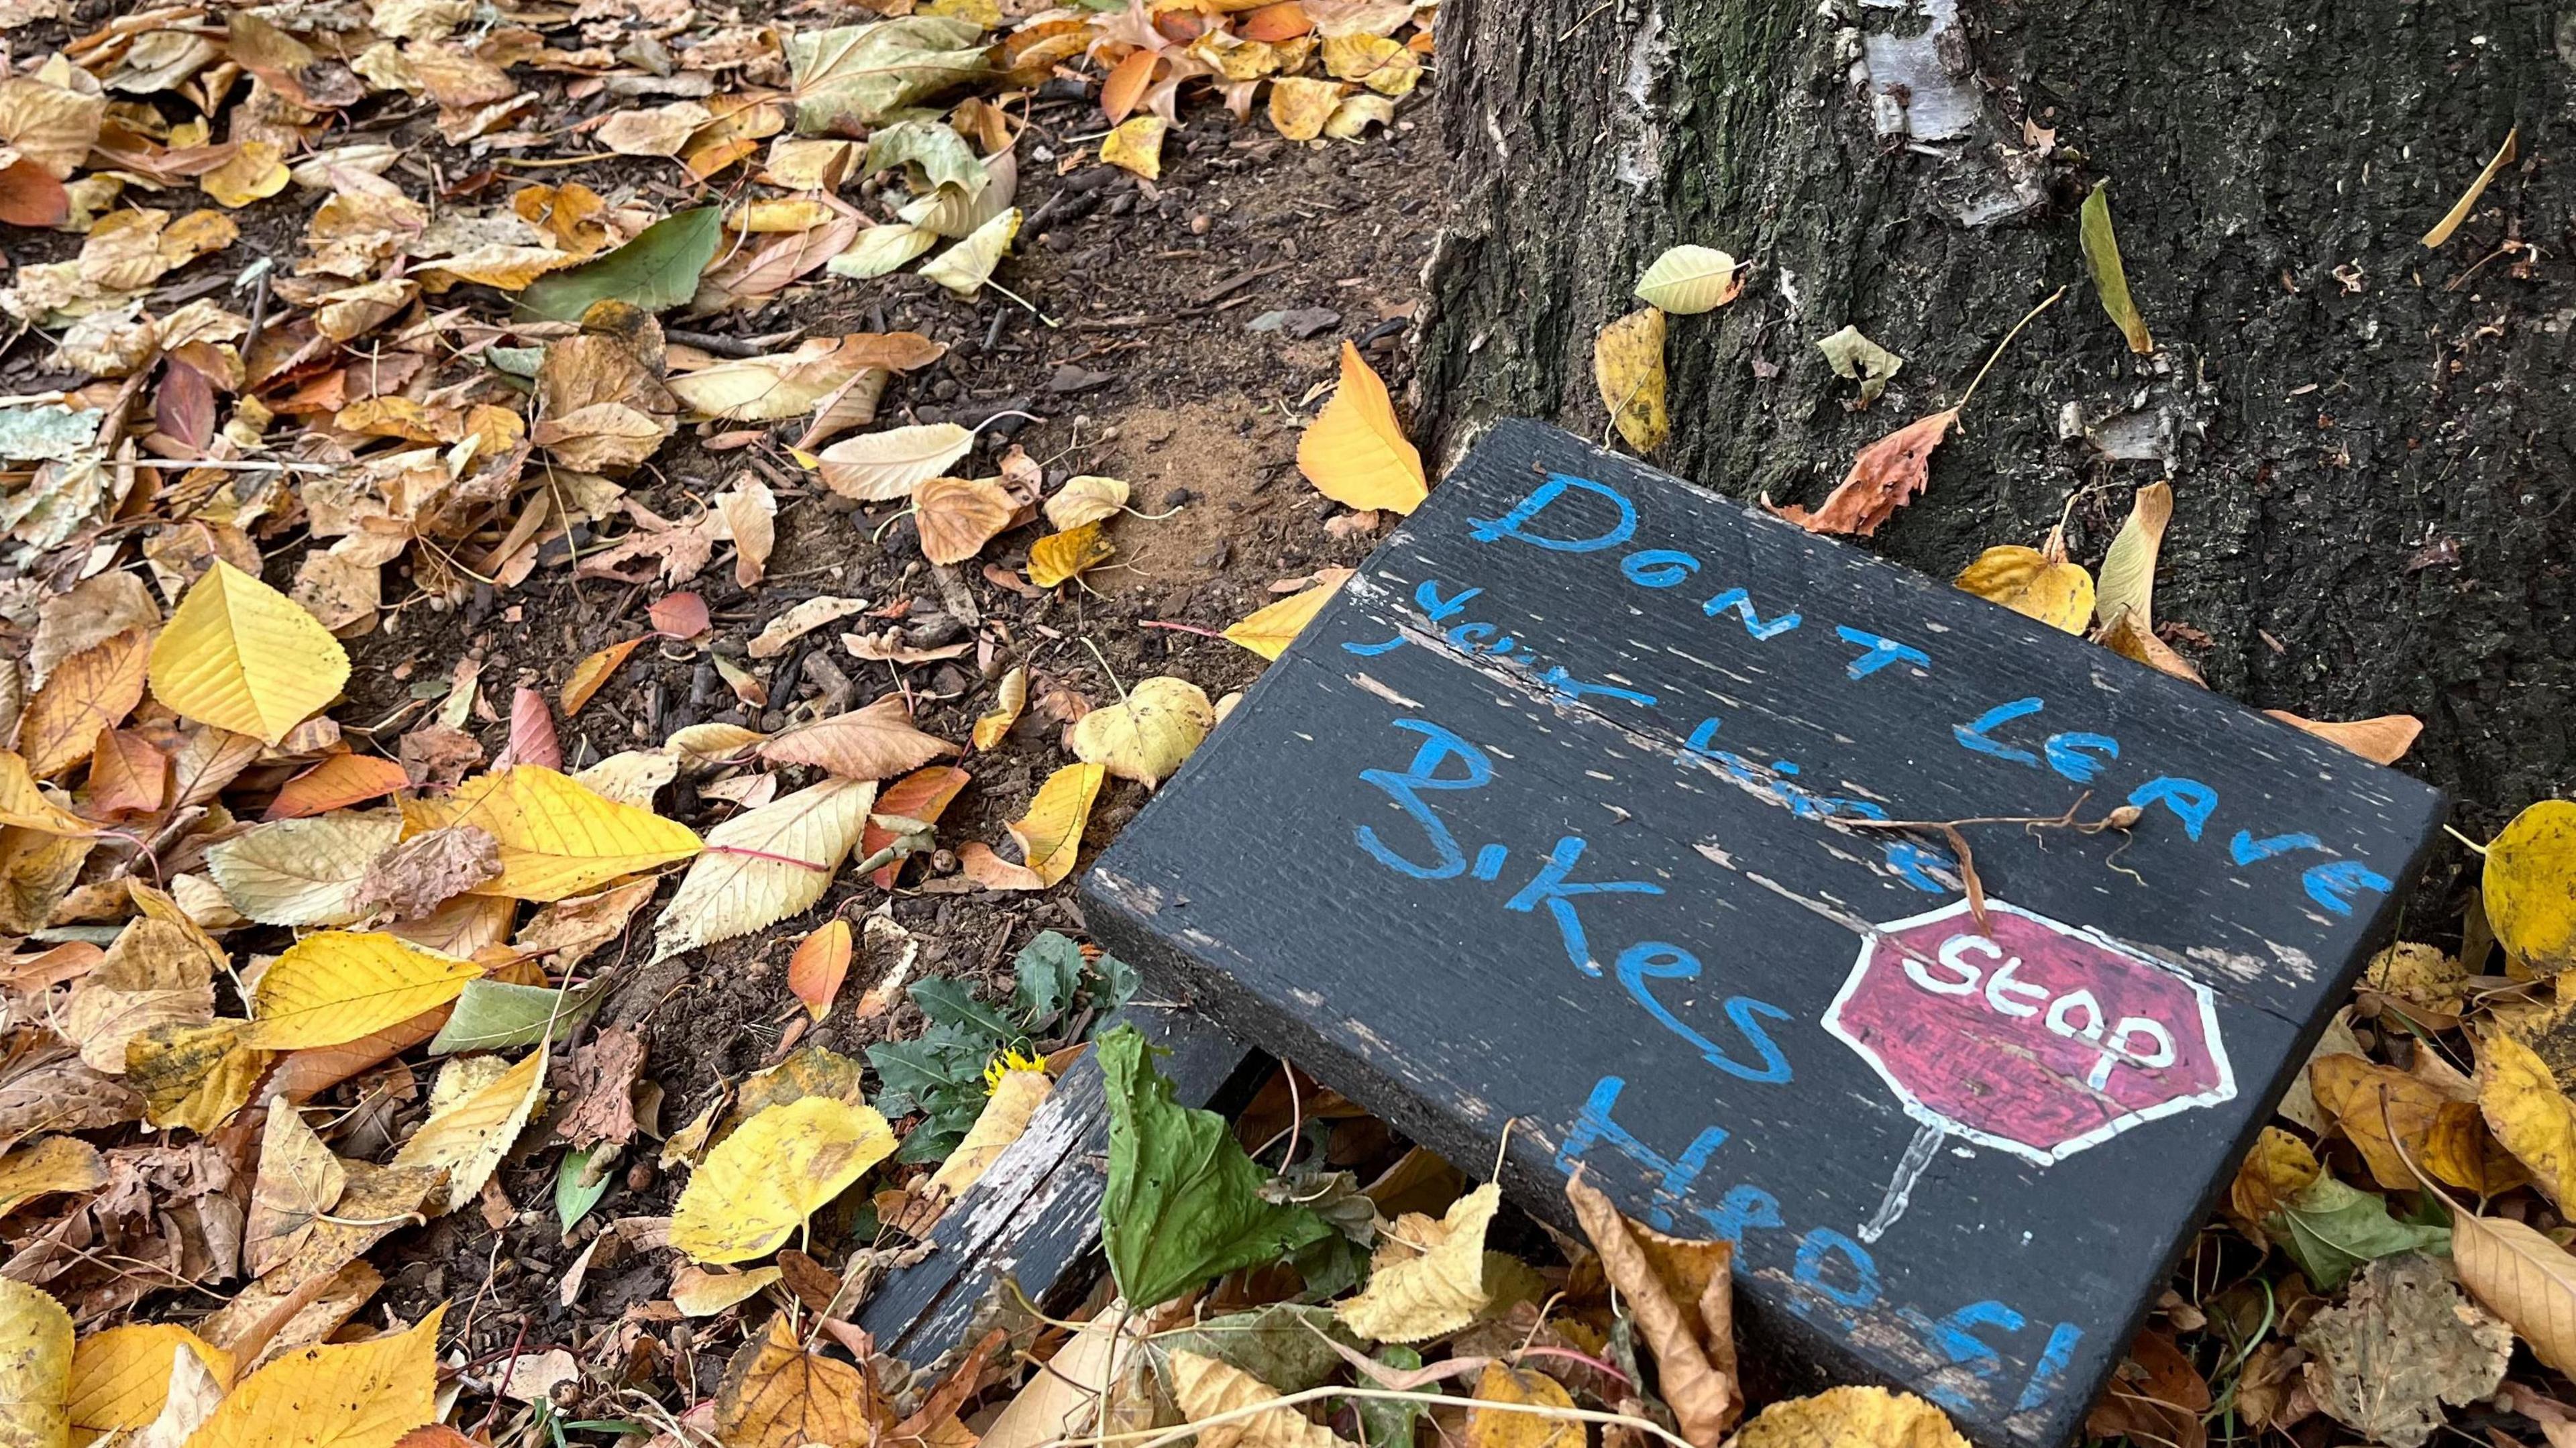 DONT LEAVE
your
Bikes
Stop